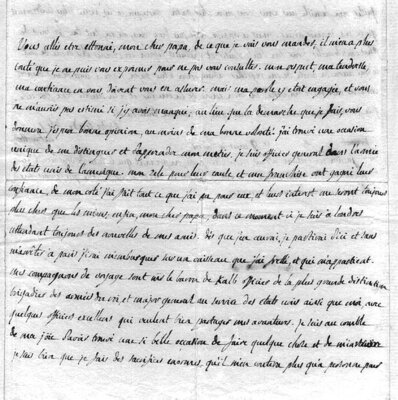 Vous allés etre ettonné, mon cher papa, de ce que je vais vous mander, il m'en a plus
couté que je ne puis vous exprimer pour ne pas vous consulter. mon respect, ma tendresse,
ma confiance en vous doivent vous en assurer. mais ma parole y etait engagée, et vous
ne m'auriés pas estimé si j'y avais manqué, au lieu que la demarche que je fais, vous
donnera j'espere bonne opinion, au moins de ma bonne volonté. j'ai trouvé une occasion
unique de me distinguer et d'apprendre mon metier. je suis officier general dans l'armée
des etats unis de l'amerique. mon zele pour leur cause et ma franchise ont gagné leur
confiance. de mon coté j'ai fait tout ce que j'ai pu pour eux, et leurs interets me seront toujours
plus chers que les miens. enfin, mon cher papa, dans ce moment ci je suis à londres
attendant toujours des nouvelles de mes amis. dès que j'en aurai, je partirai d'ici et sans
m'arrêter à paris j'irai m'embarquer sur un vaisseau que j'ai fretté, et qui m'appartient.
mes compagnons de voyage sont mr le baron de kalb officier de la plus grande distinction
brigadier des armées du roi, et major general au service des etats unis ainsi que moi avec
quelques officiers excellens qui veulent bien partager mes avantures. je suis au comble
de ma joie d'avoir trouvé une si belle occasion de faire quelque chose et de m'instruire
je sais bien que je fais des sacrifices enormes, qu'il m'en coutera plus qu'à personne pour